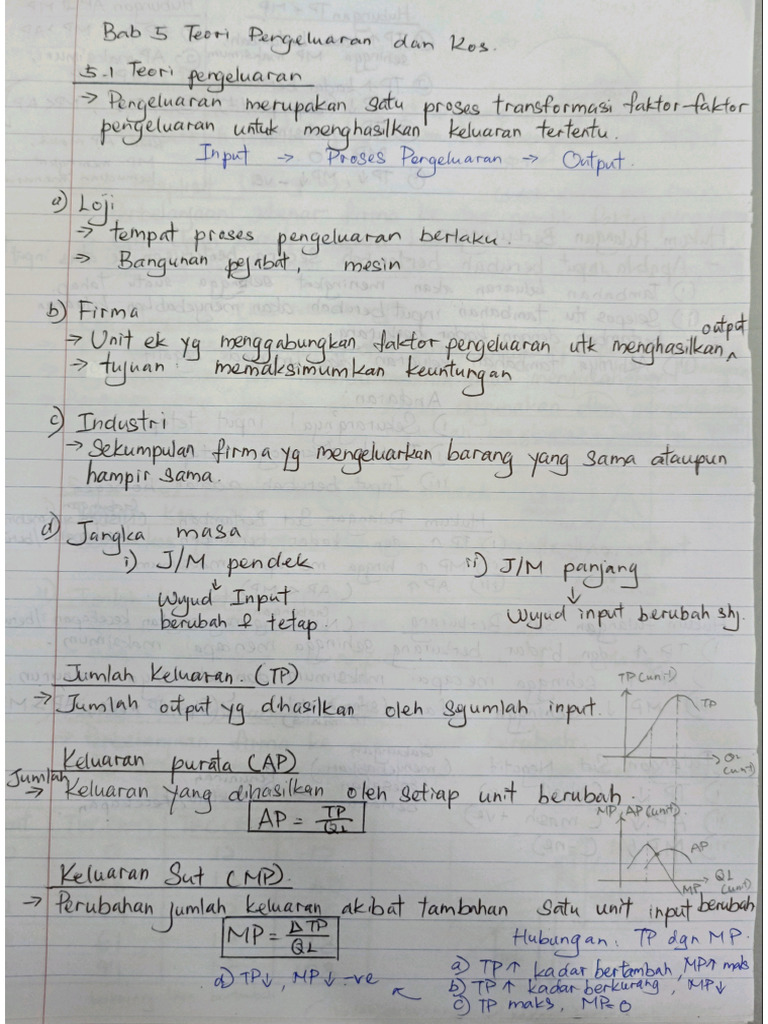 Bab 5 Teori Pengeluaran dan Kos.
5.1 Teori pengeluaran
→ Pengeluaran merupakan satu proses transformasi faktor-faktor
pengeluaran untuk menghasilkan keluaran tertentu.
Input → Proses Pengeluaran → Output.
a) Loji
→ tempat proses pengeluaran berlaku.
→ Bangunan pejabat, mesin
b) Firma
output
→ Unit ek yg menggabungkan faktor pengeluaran utk menghasilkan ^
→ tujuan : memaksimumkan keuntungan
c) Industri
→ Sekumpulan firma yg mengeluarkan barang yang sama ataupun
hampir sama.
d) Jangka masa
i) J/M pendek
↓
Wujud Input
berubah & tetap.
ii) J/M panjang
↓
Wujud input berubah shj.
Jumlah Keluaran. (TP)
→ Jumlah output yg dihasilkan oleh sejumlah input.
TP (unit)
TP
QL
(unit)
Keluaran purata (AP)
Jumlah
→ Keluaran yang dihasilkan oleh setiap unit berubah.
AP = TP/QL
MP, AP (unit)
AP
QL
(unit)
MP
Keluaran Sut (MP).
→ Perubahan jumlah keluaran akibat tambahan satu unit input berubah
MP = ΔTP/QL
Hubungan : TP dgn MP.
a) TP↑ kadar bertambah, MP↑ maks
b) TP↑ kadar berkurang, MP↓
c) TP maks, MP=0
d) TP↓, MP↓ -ve ←